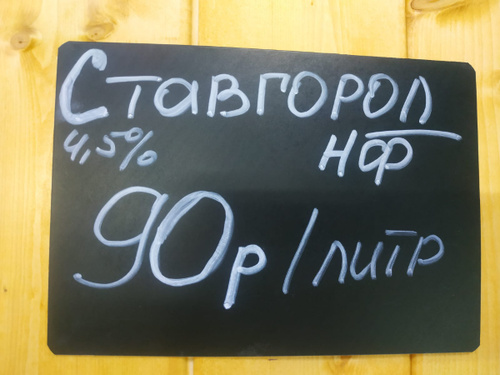 Ставгорол
4,5% НФ
90р/литр